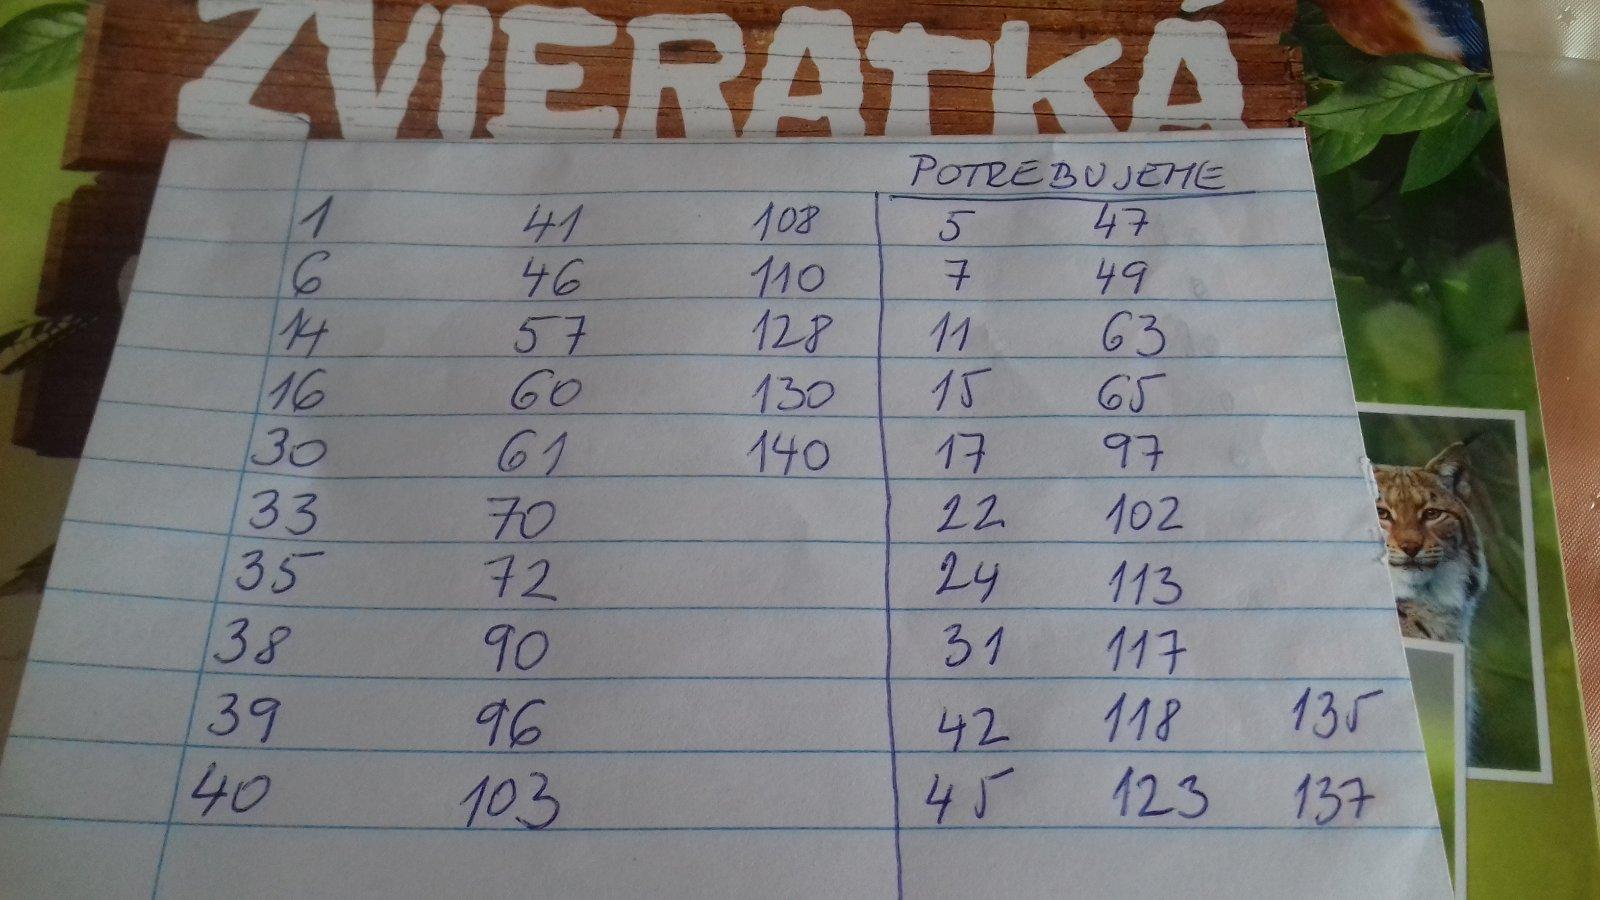 ZVIERATKÁ
POTREBUJEME
1 41 108 5 47
6 46 110 7 49
14 57 128 11 63
16 60 130 15 65
30 61 140 17 97
33 70 22 102
35 72 24 113
38 90 31 117
39 96 42 118 135
40 103 45 123 137